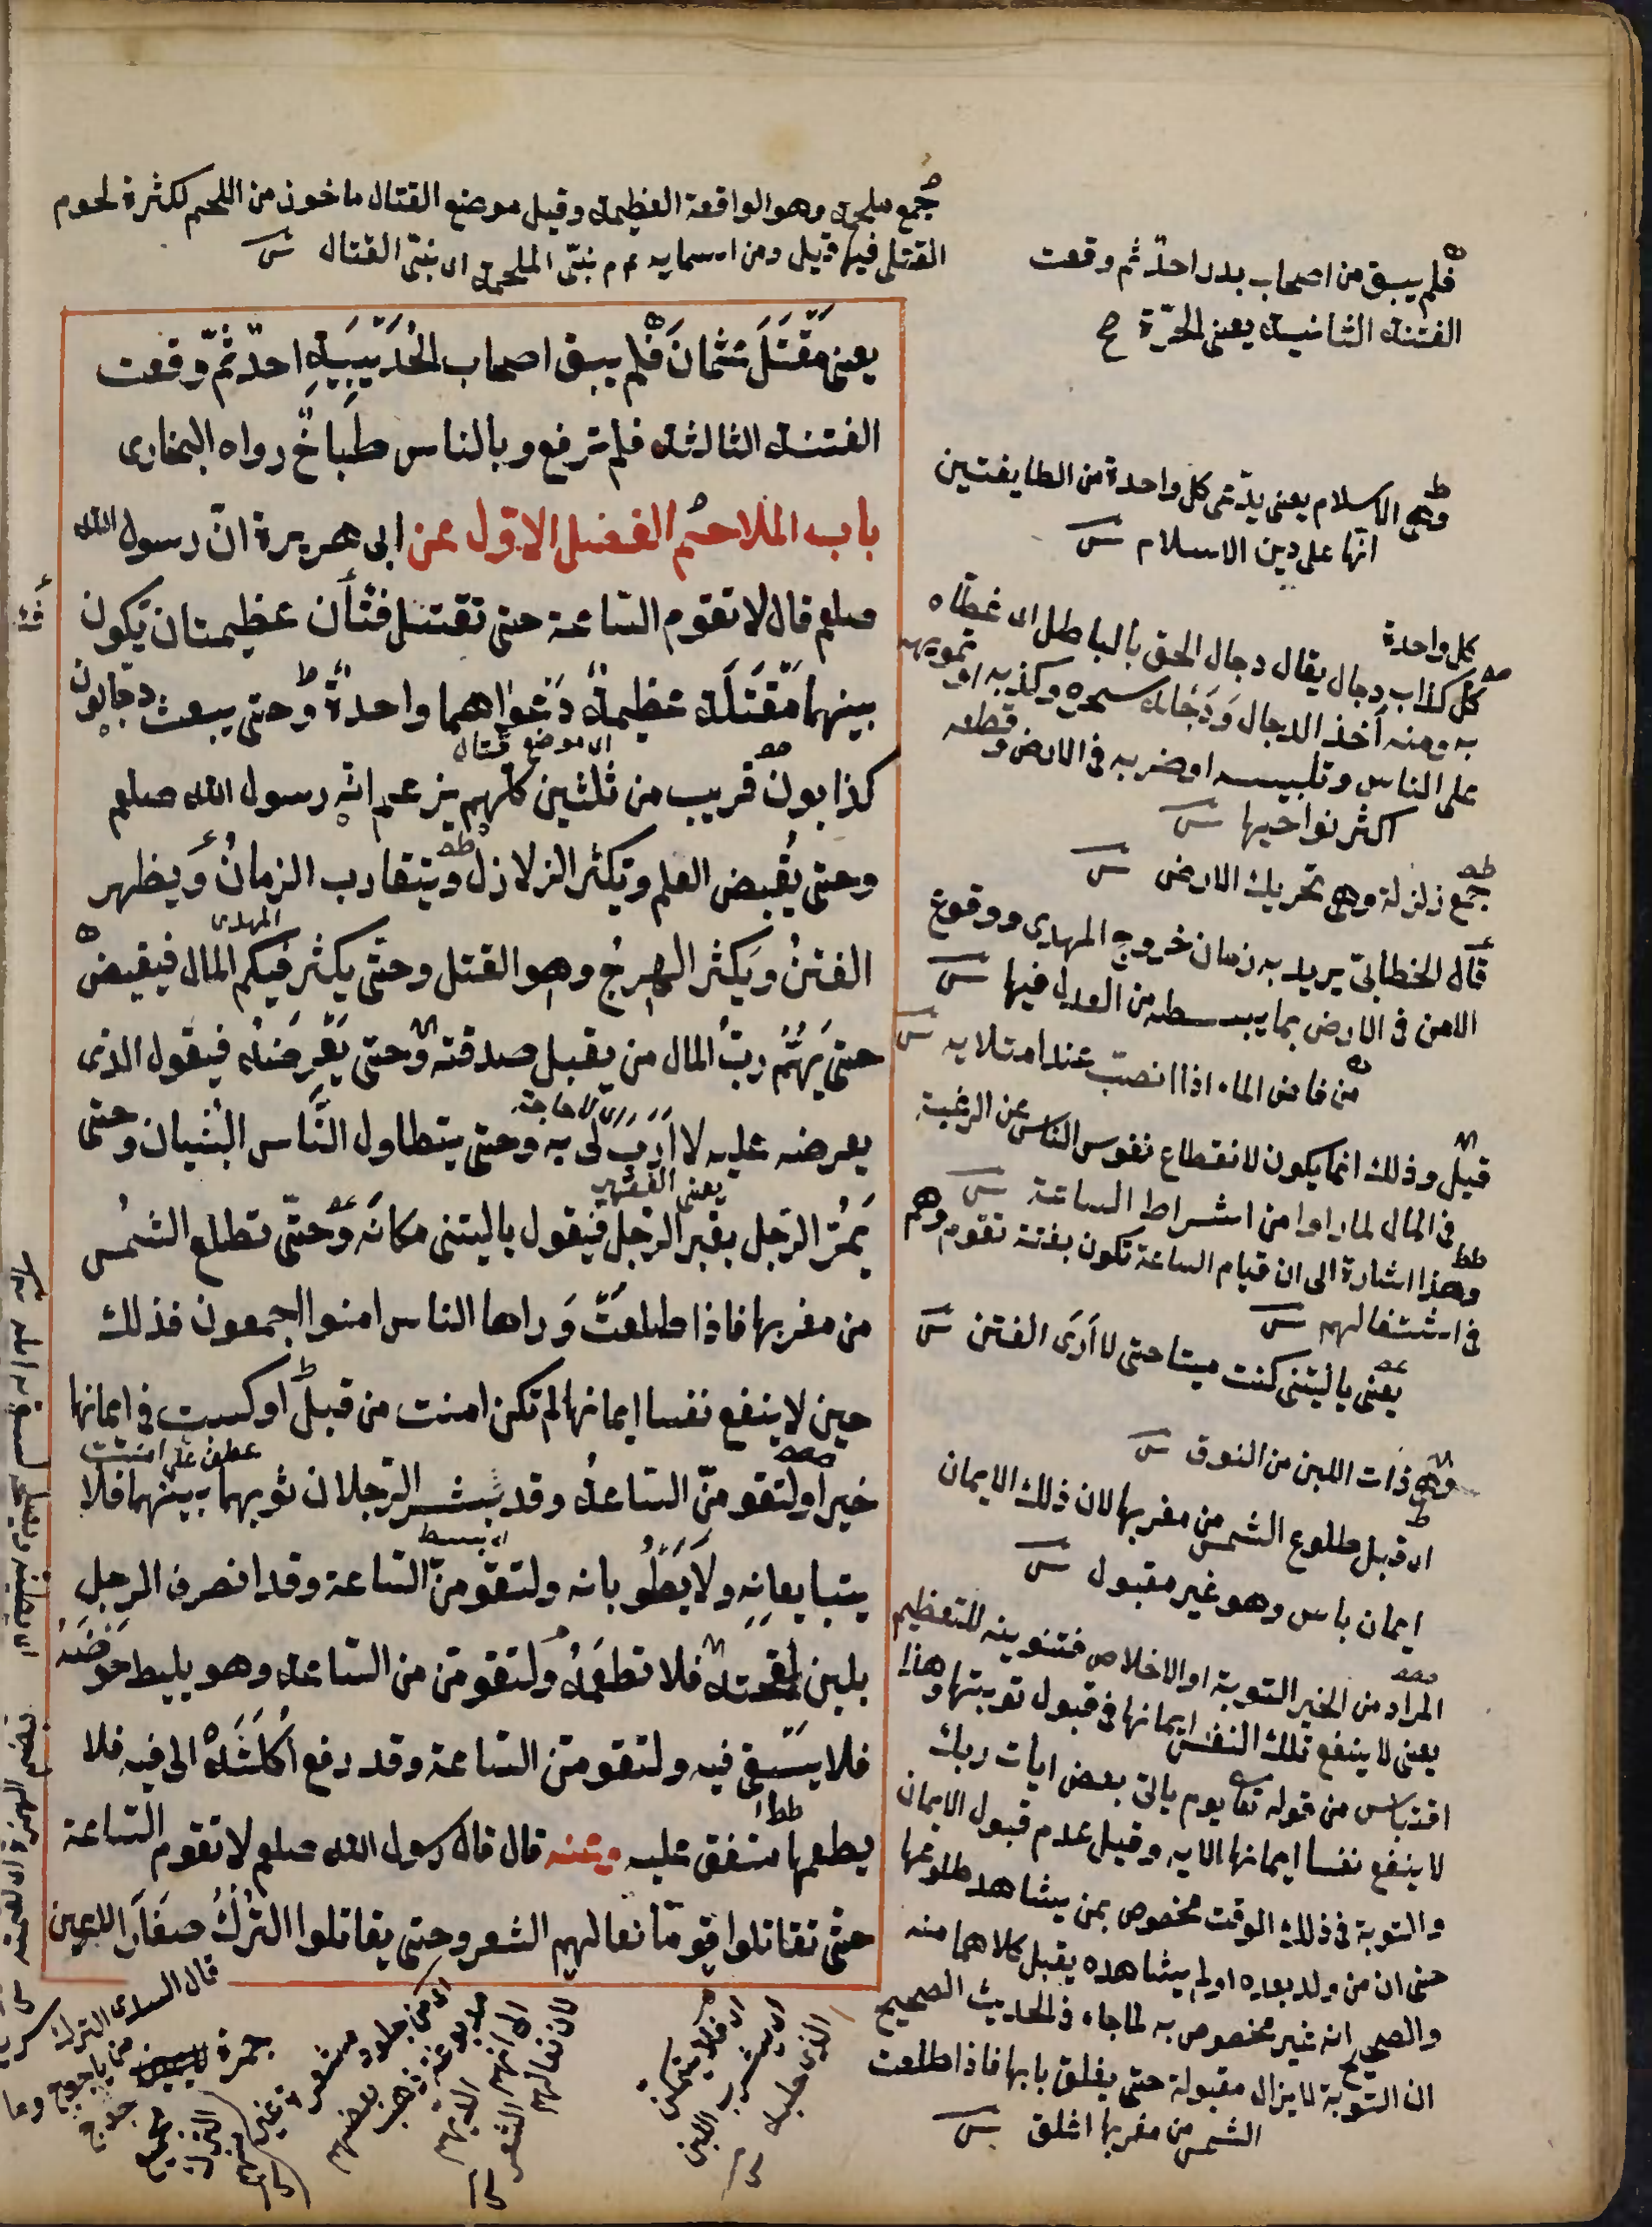 جمع ملحمة وهو الواقعة العظيمة وقيل موضع القتال ماخوذ من اللحم لكثرة لحوم
القتلى فيها قيل ومن اسمايه عم نبىّ الملحمة اى نبىّ القتال
فلم يبق من اصحاب بدر احدٌ ثم وقعت
الفتنة الثانية يعنى الحرّة
يعنى مَقْتَلَ عثمانَ فلم يبق اصحاب الحُدَيْبِيَةِ احدٌ ثمّ وقعت
الفتنة الثالثة فلم ترفع وبالناس طَبَاخٌ رواه البخارى
باب الملاحم الفصل الاول عن ابى هريرة انّ رسول الله
صلعم قال لا تقوم السّاعة حتى تقتتل فئتان عظيمتان تكون
بينهما مَقْتَلَة عظيمةٌ دَعْوَاهما واحدةٌ وحتى يبعث دجالون
اى موضع قتال
كذابون قريب من ثلثين كلهم يزعم انّه رسول الله صلعم
وحتى يُقبض العلم وتكثر الزلازل ويتقارب الزمانُ وَيظهر
المهدى
الفتنُ ويَكثر الهرجُ وهو القتل وحتّى يكثر فيكم المال فيفيض
حتى يُهِمَّ ربَّ المال من يقبل صدقته وحتى يَعْرِضَهُ فيقول الذى
اى لا حاجة
يعرضه عليه لا اَرَبَ لى به وحتى يتطاول النّاس البُنْيان وحتى
يَمُرَّ الرّجل بقبر الرّجل فيقول ياليتنى مكانَه وَحتّى تطلع الشّمس
من مغربها فاذا طلعتْ وَراها الناس امنوا اجمعون فذلك
حين لا ينفع نفسا ايمانها لم تكن امنت من قبل او كسبت فى ايمانها
عطف على امنت
خيرا ولتقومنّ السّاعةُ وقد نشر الرّجلان ثوبهما بينهما فلا
اى بسط
يتبايعانِه ولَا يَطْوُيانه ولتقومنّ السّاعة وقد انصرف الرجل
بلبن لِقحته فلا يَطعَمُهُ ولتقومنّ السّاعة وهو يليط حَوضَهُ
فلا يَسْقى فيه ولتقومنّ السّاعة وقد رفع اُكلَتَهُ الى فيه فلا
يطعمها متفق عليه وعنه قال قال رسول الله صلعم لا تقوم السّاعة
حتّى تقاتلوا قوما نعالهم الشعر وحتى يقاتلوا التُركَ صغارَ الاعين
وهى الاسلام يعنى يدّعى كل واحدة من الطايفتين
انّها على دين الاسلام
كل واحدة
كل كذاب دجال يقال دجال الحق بالباطل اى غطاه
به ومنه اُخذ الدجال وَدَجَالُه سحره وكذبه او تمويهه
على الناس وتلبيسه او ضربه فى الارض وقطعه
اكثر نواحيها
جمع زلزلة وهى تحريك الارض
قال الخطابىّ يريد به زمان خروج المهدى ووقوع
الامن فى الارض بما يبسطه من العدل فيها
من فاض الماء اذا انصبّ عند امتلايه
قيل وذلك انما يكون لانقطاع نفوس الناس عن الرغبة
فى المال لما راوا من اشراط الساعة
وهذا اشارة الى ان قيام الساعة تكون بغتة تقوم وهم
فى اشتغالهم
يعنى ياليتنى كنت ميتا حتى لا اَرَى الفتن
وهى ذات اللبن من النوق
اى قبل طلوع الشمس من مغربها لان ذلك الايمان
ايمان باس وهو غير مقبول
المراد من الخير التوبة او الاخلاص فتنوينه للتعظيم
يعنى لا ينفع تلك النفس ايمانها فى قبول توبتها وهذا
اقتباس من قوله تعا يوم ياتى بعض ايات ربك
لا ينفع نفسا ايمانها الايه وقيل عدم قبول الايمان
والتوبة فى ذلك الوقت مخصوص بمن يشاهد طلوعها
حتى ان من ولد بعده او لم يشاهده يقبل كلاهما منه
والصحيح انه غير مخصوص به لما جاء فى الحديث الصحيح
ان التوبة لا يزال مقبولة حتى يغلق بابها فاذا طلعت
الشمس من مغربها اغلق
الذى حلبه
اى يشرب اللبن
اى فلا يتمكن
لان نعالهم
اى من جلود مشعرة غير
مدبوغة
قال السدى الترك
من ياجوج وما
جوج